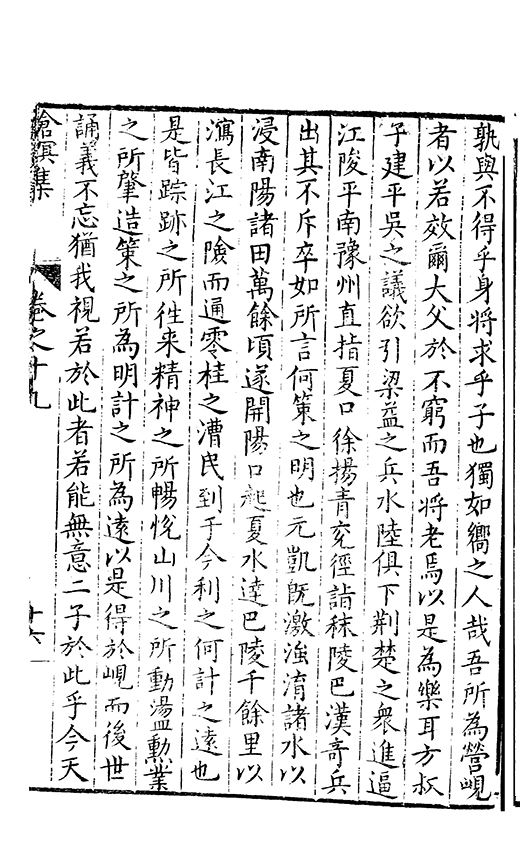 孰與不得乎身將求乎子也獨如嚮之人哉吾所為營峴
者以若效爾大父於不窮而吾將老焉以是為樂耳方叔
子建平吳之議欲引梁益之兵水陸俱下荆楚之衆進逼
江陵平南豫州直指夏口徐揚青兖徑詣秣陵巴漢奇兵
出其不斥卒如所言何策之明也元凱旣激滍淯諸水以
浸南陽諸田萬餘頃遂開陽口起夏水達巴陵千餘里以
瀉長江之險而通零桂之漕民到于今利之何計之遠也
是皆踪跡之所徃来精神之所暢悅山川之所動盪勲業
之所肇造策之所為明計之所為遠以是得於峴而後世
誦義不忘猶我視若於此者若能無意二子於此乎今天
滄溟集
卷之十九
十六